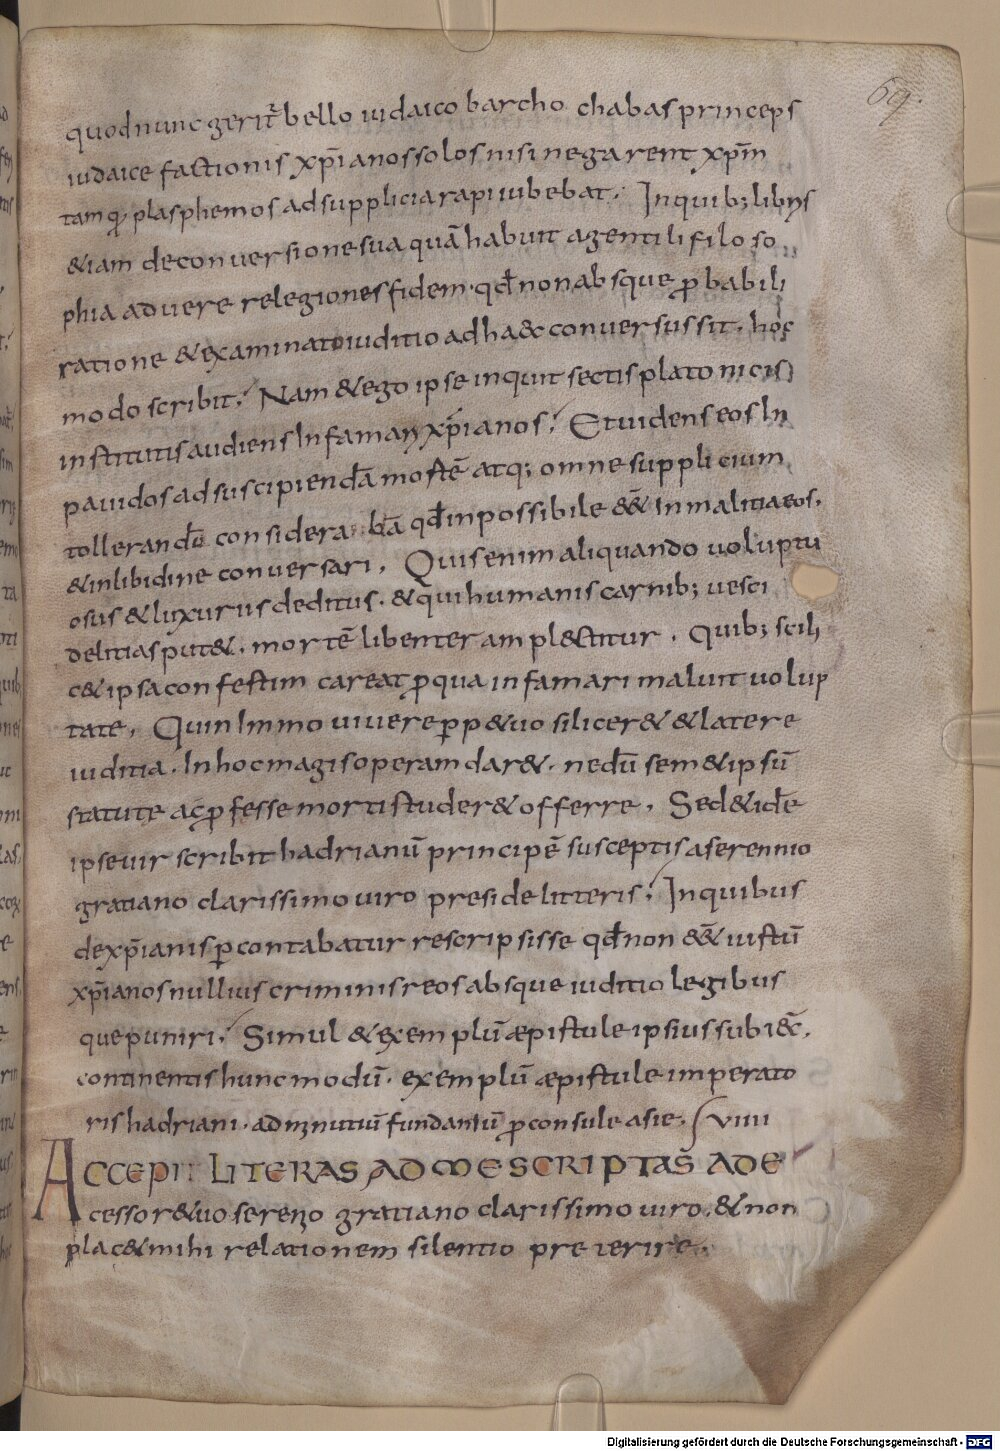 69.
quod nunc gerit᷑ bello iudaico barcho chabas princeps
iudaice factionis xp̄ianos solos nisi negarent xp̄m
tamq; plasphemos ad supplicia rapi iubebat. In quib; libris
&iam de conversione sua quā habuit a gentili filoso
phia ad vere relegiones fidem. qd̄ non absque ꝓbabili
ratione & examinato iuditio ad haec conversus sit. hoc
modo scribit. Nam & ego ipse inquit sectis platonicis
institutis audiens Infamari xp̄ianos. Et videns eos In
pavidos ad suscipiendā mortē atq; omne supplicium
tollerandū considerabā qd̄ inpossibile eēt In malitia eos.
& in libidine conversari. Quis enim aliquando voluptu
osus & luxuriis deditus. & qui humanis carnib; vesci
delitias put&. mortē libenter ampl&titur. Quib; scili
c& ipsa confestim careat ꝓ qua infamari maluit volup
tate. Quin Immo vivere ꝑp&uo silicer& & latere
iuditia. In hoc magis operam dar&. nedū sem&ipsū
statute ac ꝓfesse morti studer& offerre. Sed & idē
ipse vir scribit hadrianū principē susceptis a serennio
gratiano clarissimo viro preside litteris. In quibus
de xp̄ianis ꝑcontabatur rescripsisse qd̄ non eēt iustū
xp̄ianos nullius criminis reos absque iuditio legibus
que puniri. Simul & exemplū aepistule ipsius subiec̄.
continentis hunc modū. exemplū aepistule imperato
ris hadriani. ad mnutiū fundaniū ꝓconsule asie. VIIII
ACCEPI LITERAS AD ME SCRIPTAS A DE
cessore tuo sereno gratiano clarissimo viro. & non
plac& mihi relationem silentio preterire.
Digitalisierung gefördert durch die Deutsche Forschungsgemeinschaft - DFG